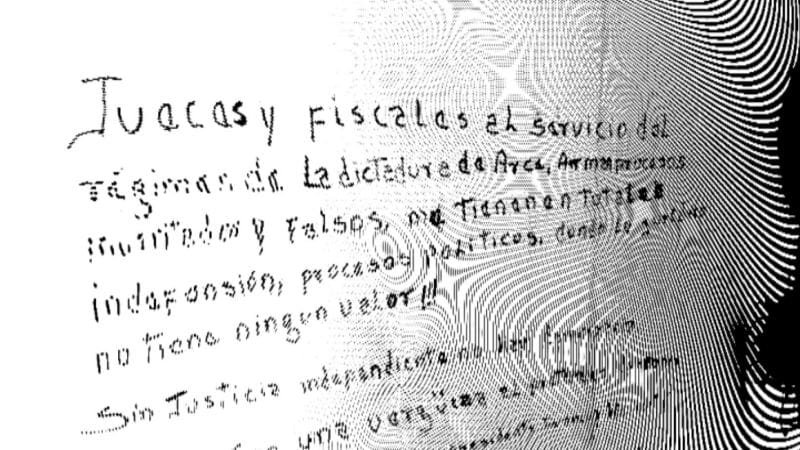 Jueces y fiscales al servicio del
régimen de La dictadura de Arce, Arman procesos
inventados y falsos, me tienen en total
indefensión, procesos políticos, donde la
no tiene ningun valor!!!
Sin Justicia independiente no hay democracia
una vergüenza